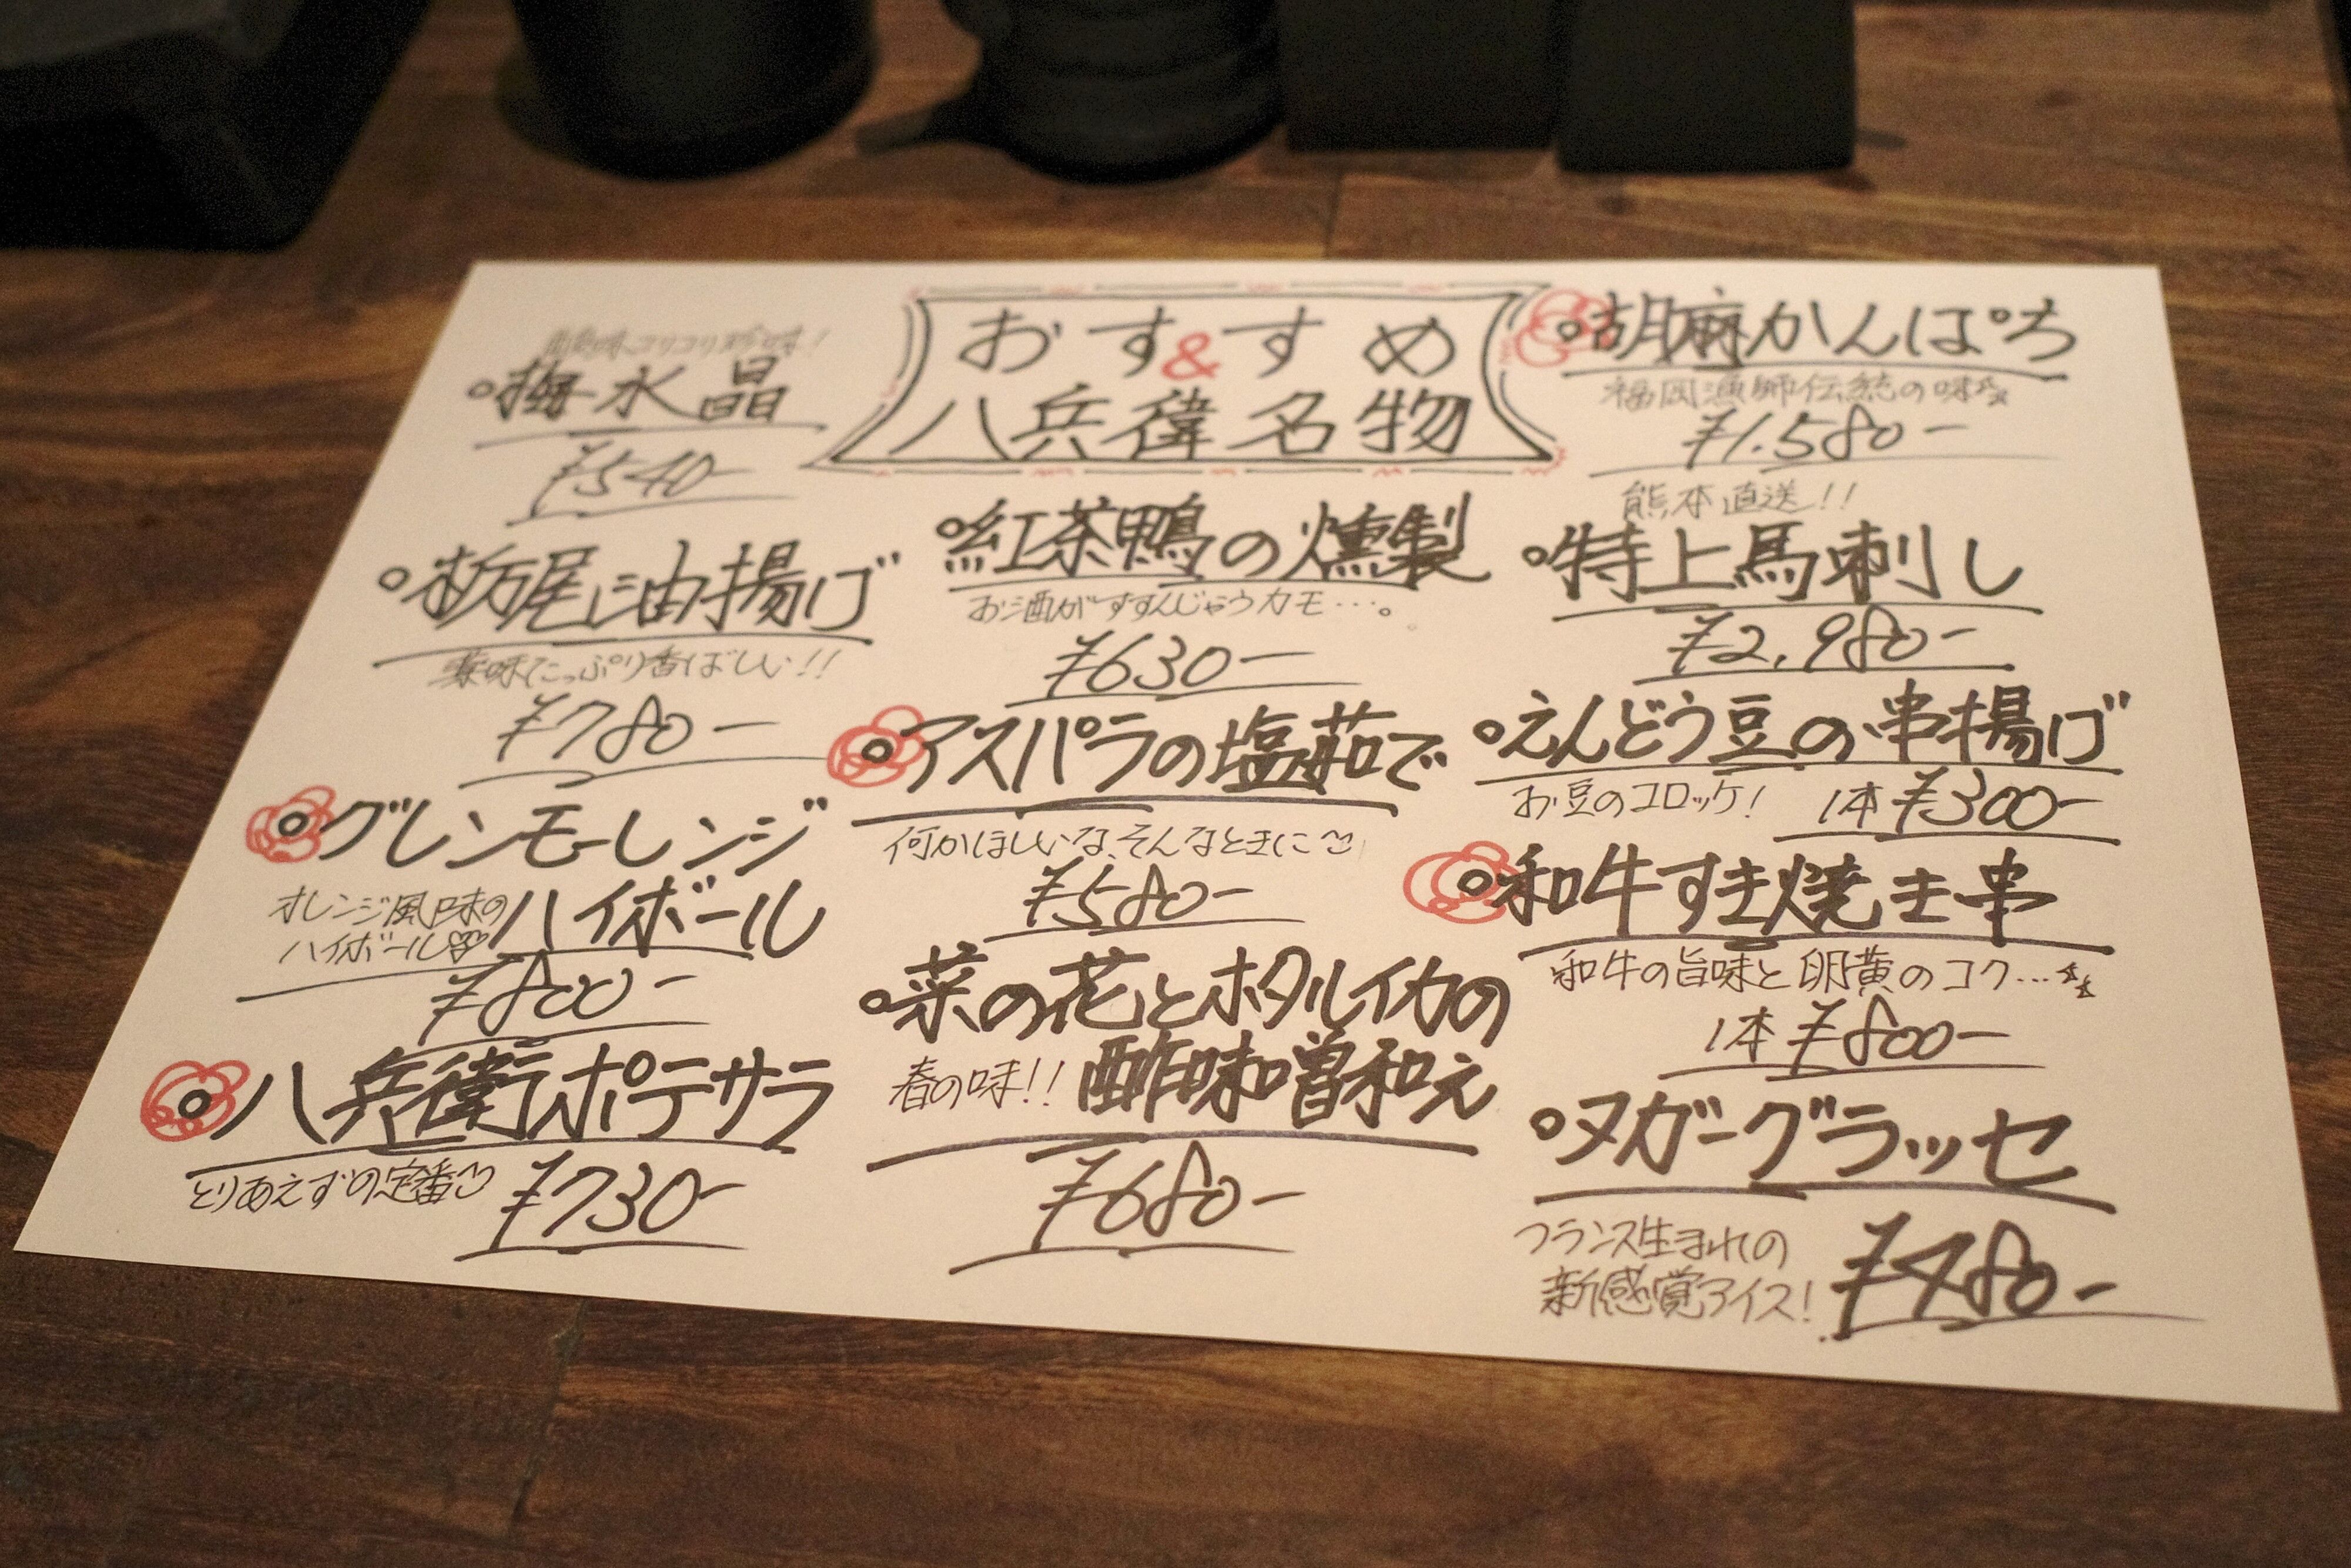 おすすめ
&
八兵衛名物
胡麻かんぱち
福岡漁師伝統の味
¥1.580-
熊本直送!!
特上馬刺し
¥2,980-
えんどう豆の串揚げ
お豆のコロッケ! 1本 ¥300-
和牛すき焼き串
和牛の旨味と卵黄のコク...
1本 ¥800-
ヌガーグラッセ
フランス生まれの
新感覚アイス!
¥480-
紅茶鴨の燻製
お酒がすすんじゃうカモ...。
¥630-
アスパラの塩茹で
何かほしいな、そんなときに
¥580-
菜の花とホタルイカの
春の味!! 酢味噌和え
¥680-
コリコリ珍味!
梅水晶
¥540-
栃尾油揚げ
薬味たっぷり香ばしい!!
¥780-
グレンモーレンジ
ハイボール
オレンジ風味の
ハイボール♡
¥800-
八兵衛ポテサラ
とりあえずの定番 ¥730-